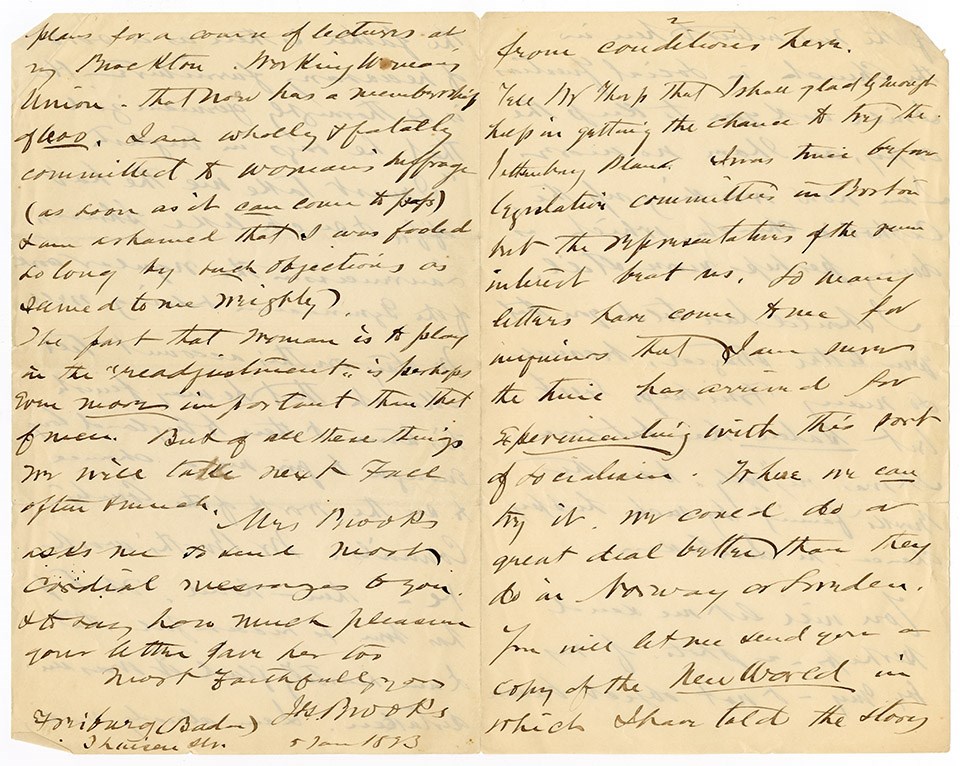 plans for a course of lectures at
my Brockton Working Woman's
Union - that now has a membership
of 400. I am wholly & fatally
committed to woman's suffrage
(as soon as it can come to pass)
& am ashamed that I was fooled
so long by such objections as
seemed to me weighty)
The part that woman is to play
in the "readjustment" is perhaps
even more important than that
of men. But of all these things
we will talk next Fall
after lunch.
Mrs Brooks
asks me to send most
cordial messages to you.
& to say how much pleasure
your letter gave her too
Most faithfully yours
J.G. Brooks
Freiburg (Baden)
str.
5 Jan 1893
2
from conditions here.
Tell Mr Thorp that I shall gladly enough
help in getting the chance to try the
Gothenburg Plan. I was twice before
legislative committees in Boston
but the representatives of the rum
interest beat us. So many
letters have come to me for
inquiries that I am sure
the time has arrived for
experimenting with this sort
of socialism. Where we can
try it. We could do a
great deal better than they
do in Norway or Sweden.
You will let me send you a
copy of the New World in
which I have told the story